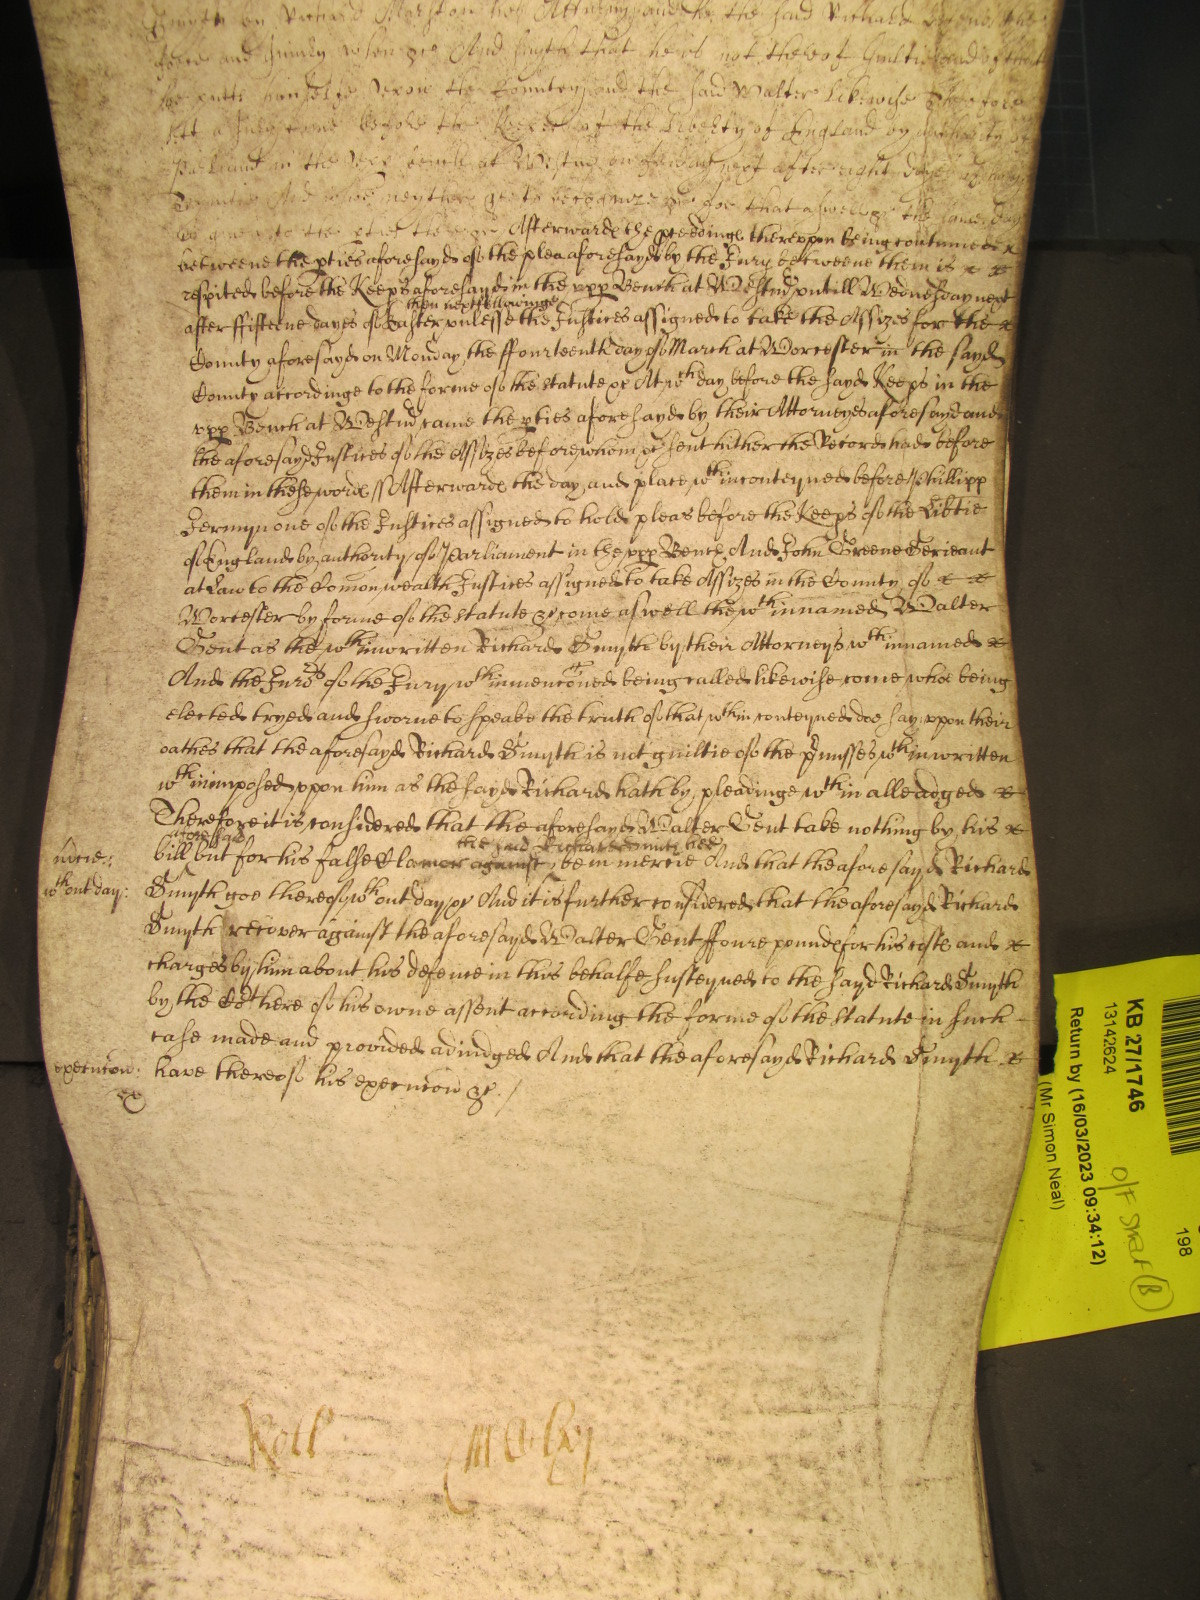 Smyth by Richard Marston his Atturney and the said Richard
force and Iniury when &c And sayth that he is not thereof Guiltie And of this
he putts himselfe vpon the Countrey and the said Walter likewise Therefore
lett a Iury come before the Keepers of the Liberty of England by authority of
Parliamt in the vpp bench at Westmr on next after eight dayes
And who neyther &c to recognize &c for that aswell &c the same day
is giuen to the there &c Afterwards the pceedings therevppon being continued x
betweene the pties aforesayd of the plea aforesayd by the Iury betweene them is x x
respited before the Keeps aforesayd in the vpp Bench at Westmr vntill Wednesday next
after ffifteene dayes of Easter then next followinge vnlesse the Iustices assigned to take the Assizes for the x
County aforesayd on Monday the ffourteenth day of March at Worcester in the sayd
County accordinge to the forme of the statute &c At wch day before the sayd Keeps in the
vpp Bench at Westmr came the pties aforesayd by their Attorneyes aforesayd and
the aforesayd Iustices of the Assizes before whom &c sent hither the Record had before
them in these words ss Afterwards the day and place wthin conteyned before Phillipp
Jermyn one of the Iustices assigned to hold pleas before the Keeps of the Libtie
of England by authority of Parliament in the vpp Bench And John Greene Serieant
at Law to the Comonwealth Iustices assigned to take Assizes in the County of x x
Worcester by forme of the statute &c come aswell the wthinnamed Walter
Gent as the wthinwritten Richard Smyth by their Attorneys wthinnamed x
And the Iurs of the Iury wthinmenconed being called likewise come who being
elected tryed and sworne to speake the truth of that wthin conteyned doe say vppon their
oathes that the aforesayd Richard Smyth is not guiltie of the pmisses wthinwritten
wthinimposed vppon him as the sayd Richard hath by pleadinge wthin alleadged x
Therefore it is considered that the aforesayd Walter Gent take nothing by his x
mercie: aforesaid bill but for his false Clamor against the said Richard Smyth hee be in mercie And that the aforesayd Richard
wthout day: Smyth goe thereof wthout day &c And it is further considered that the aforesayd Richard
Smyth recover against the aforesayd Walter Gent ffoure pounds for his costs and x
charges by him about his defence in this behalfe susteyned to the sayd Richard Smyth
by the Cort here of his owne assent according the forme of the statute in such
case made and provided adiudged And that the aforesayd Richard Smyth x
execucon: have thereof his execucon &c /
Roll
KB 27/1746
13142624
Return by (16/03/2023 09:34:12)
(Mr Simon Neal)
O/F
B
198